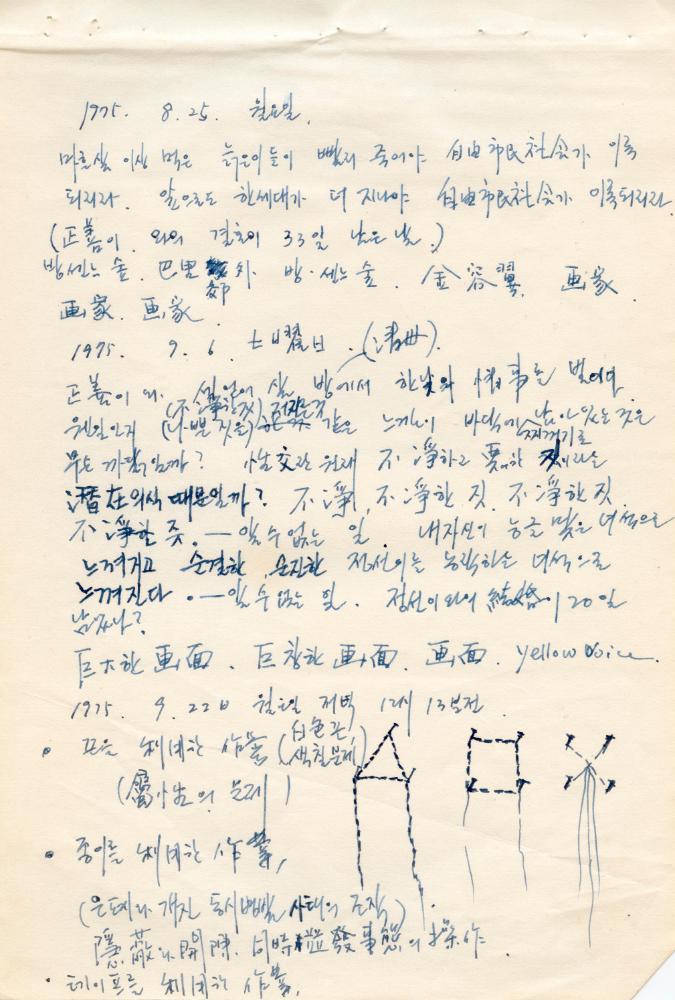 1975. 8. 25. 월요일.
마흔살 이상 먹은 늙은이들이 빨리 죽어야 自由市民社会가 이룩
되리라. 앞으로도 한세대가 더 지나야 自由市民社会가 이룩되리라
(正善이 와의 결혼이 33일 남은 날.)
방·센느 숲. 巴里 郊外 방·센느 숲. 金容翼. 画家.
画家. 画家
1975. 9. 6. 土曜日.
正善이 와 방에서 한낮의 情事를 벌이다.
웬일인지 (不淨한 짓) (나쁜 짓을) 같은 느낌이 바닥에 찌꺼기로 남아있는 것은
무슨 까닭일까? 性交란 원래 不淨하고 惡한
潛在의식 때문일까? 不淨, 不淨한 짓, 不淨한 짓,
不淨한 짓. — 알 수 없는 일. 내 자신이 능글맞은 녀석으로
느껴지고 순결한, 순진한 정선이를 농락하는 녀석으로
느껴진다. — 알 수 없는 일. 정선이와의 結婚이 20일
남았나?
巨大한 画面. 巨창한 画面. 画面. yellow voice.
1975. 9. 22日 월요일 저녁 12시 13분전.
• 끈을 作業 (白色끈, 색칠문제)
(屬性의 문제)
• 종이를 作業,
(은폐와 개진 동시병발 사태의 조작)
隱蔽와 開陳, 同時竝發事態의 操作
• 테이프를 作業,